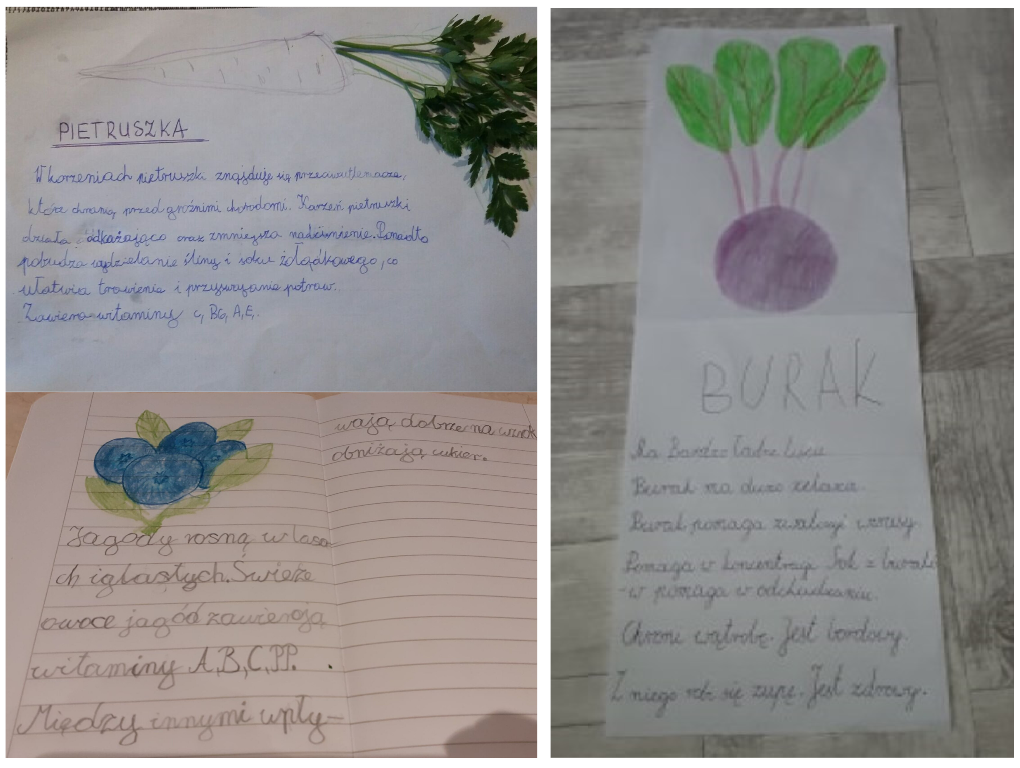 PIETRUSZKA
W korzeniach pietruszki znajduje się przeciwutleniacze,
które chronią przed groźnimi chorobomi. Korzeń pietruszki
działa odkażająco oraz zmniejsza nadciśnienie. Ponadto
pobudza wydzielanie śliny i soku żołądkowego, co
ułatwia trawienia i przyswajania potraw.
Zawiera witaminy C, B6, A, E.
Jagody rosną w lasa
ch iglastych. Świeże
owoce jagód zawierają
witaminy A, B, C, PP.
Między innymi wpły-
wają dobrze na wzrok
obniżają cukier.
BURAK
Ma Bardzo ładne liście
Burak ma dużo żelaza.
Burak pomaga zwalczyć wirusy.
Pomaga w koncentracji. Sok z burakó
-w pomaga w odchudzaniu.
Chroni wątrobę. Jest bordowy.
Z niego robi się zupę. Jest zdrowy.